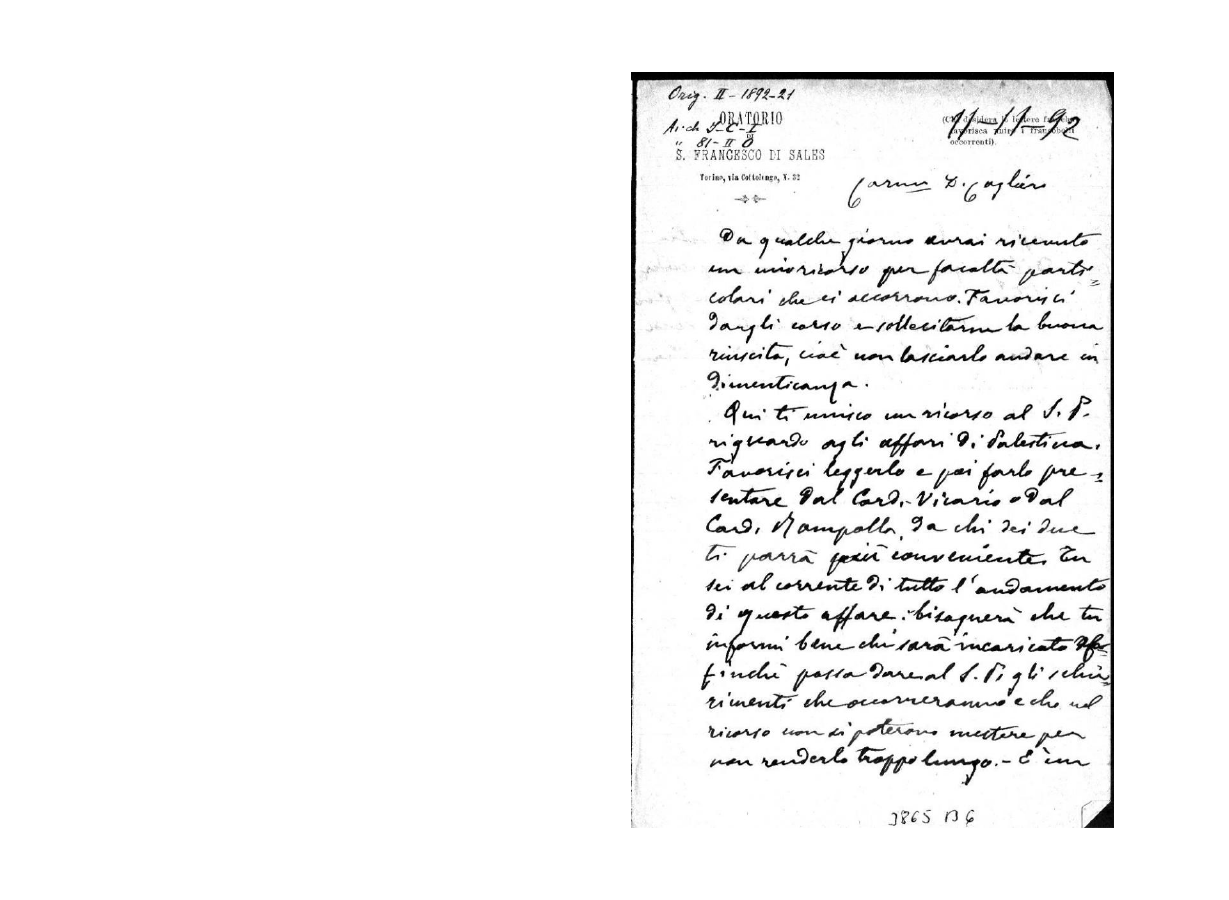 Orig. II - 1892-21
ORATORIO
Arch S-C-I
" 81-II O
DI
S. FRANCESCO DI SALES
Torino, via Cottolengo, N. 32
(Chi desidera lettere
favorisca unire i francobolli
occorrenti).
11-11-92
Carmo D. Cagliero
Da qualche giorno avrai ricevuto
un mio ricorso per facoltà parti=
colari che ci occorrono. Favorisci
dargli corso e sollecitarne la buona
riuscita, cioè non lasciarlo andare in
dimenticanza.
Qui ti unisco un ricorso al S. P.
riguardo agli affari di Palestina.
Favorisci leggerlo e poi farlo pre=
sentare dal Card. Vicario o dal
Card. Rampolla, da chi dei due
ti parrà più conveniente. Tu
sei al corrente di tutto l'andamento
di questo affare: bisognerà che tu
informi bene chi sarà incaricato af=
finchè possa dare al S. P. gli schia=
rimenti che occorreranno e che nel
ricorso non si poterono mettere per
non renderlo troppo lungo. - È un
3865 B6